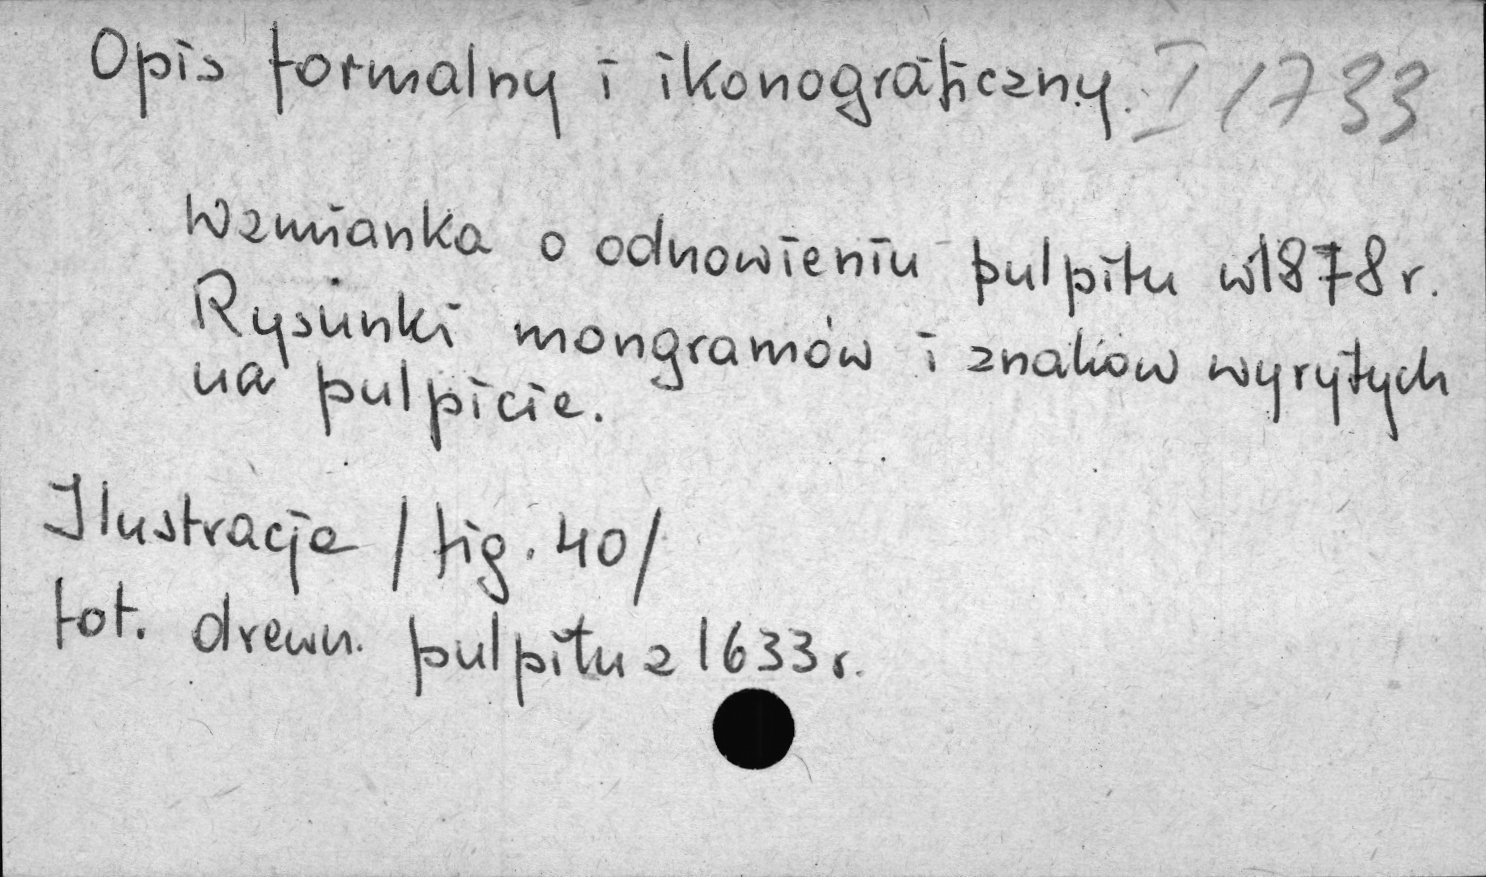 Opis formalny i ikonograficzny. I 1733
Wzmianka o odnowieniu pulpitu w 1878 r.
Rysunki mongramów i znaków wyrytych
na pulpicie.
Ilustracje /fig. 40/
fot. drewn. pulpitu z 1633 r.